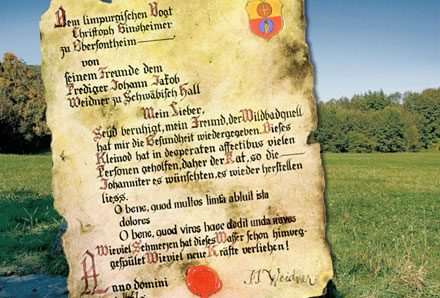 Dem limpurgischen Vogt
Christoph Sinsheimer
zu Obersontheim
von
seinem Freunde dem
Prediger Johann Jakob
Weidner zu Schwäbisch Hall
Mein Lieber,
Seyd beruhigt, mein Freund, der Wildbadquell
hat mir die Gesundheit wiedergegeben. Dieses
Kleinod hat in desperaten affectibus vielen
Personen geholfen, daher der Rat, so die
Johanniter es wünschten, es wieder herstellen
liess.
O bene, quod multos limfa abluit ista
dolores
O bene, quod vires haec dedit unda novas
Wieviel Schmerzen hat dieses Wasser schon hinweg-
gespület Wieviel neue Kräfte verliehen!
Anno domini
J J Weidner